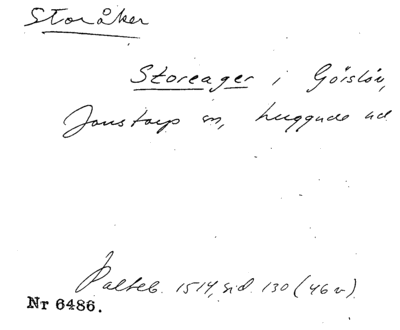 Storåker
Storeager i Görslöv,
Jonstorp sn, Luggude hd
Palteb. 1514, sid. 130 (46v).
Nr 6486.